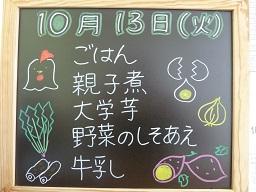 10月13日(火)
ごはん
親子煮
大学芋
野菜のしそあえ
牛乳し